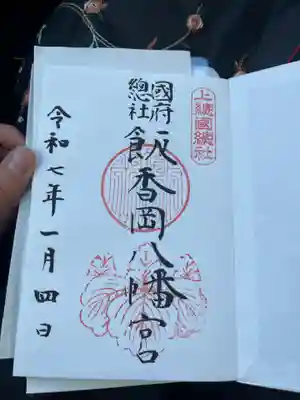 上總國總社
國府
總社
飯香岡八幡宮
令和七年一月四日